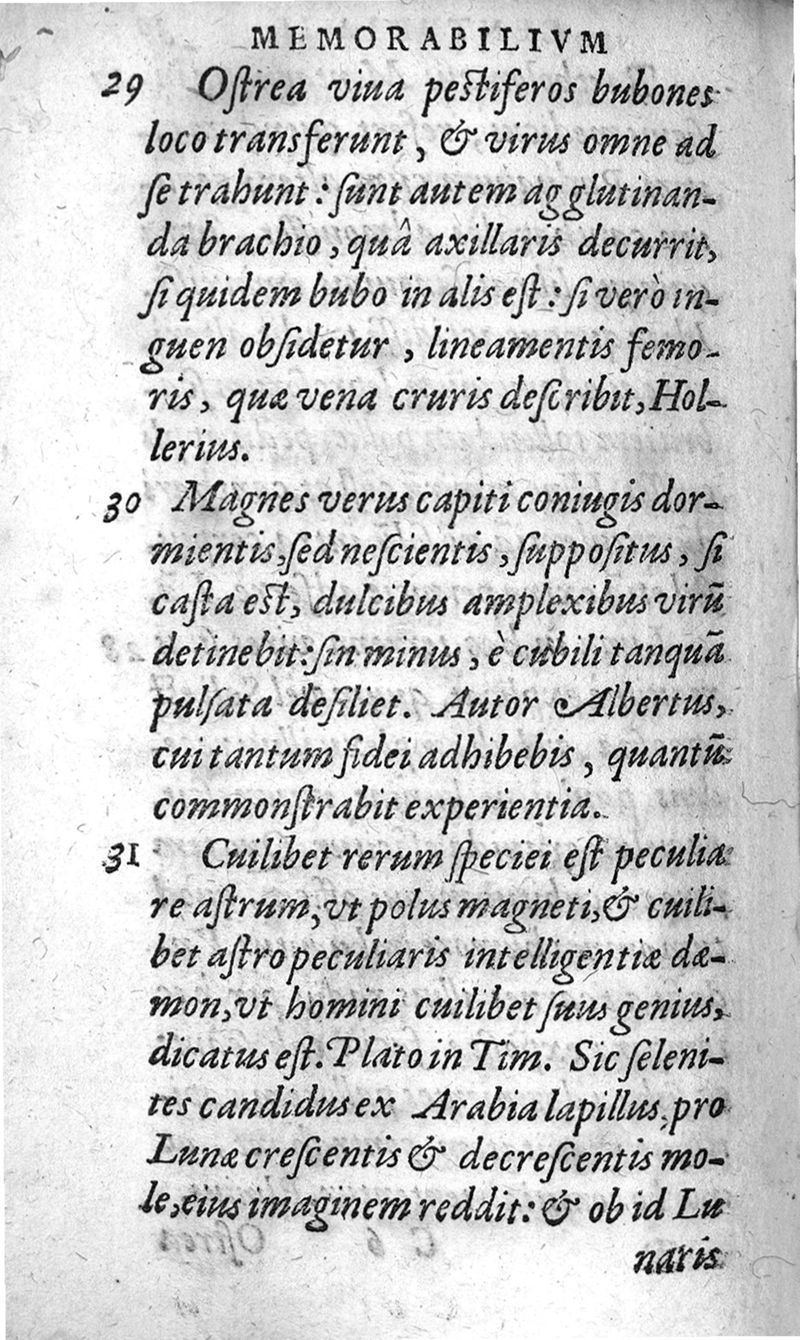 MEMORABILIVM
29 Oſtrea viua peſtiferos bubones
loco transferunt, & virus omne ad
ſe trahunt: ſunt autem agglutinan-
da brachio, quâ axillaris decurrit,
ſi quidem bubo in alis eſt: ſi verò in-
guen obſidetur, lineamentis femo-
ris, quæ vena cruris deſcribit, Hol-
lerius.
30 Magnes verus capiti coniugis dor-
mientis, ſed neſcientis, ſuppoſitus, ſi
caſta eſt, dulcibus amplexibus virū
detinebit: ſin minus, è cubili tanquā
pulſata deſiliet. Autor Albertus,
cui tantum fidei adhibebis, quantū
commonſtrabit experientia.
31 Cuilibet rerum ſpeciei eſt peculia
re aſtrum, vt polus magneti, & cuili-
bet aſtro peculiaris intelligentiæ dæ-
mon, vt homini cuilibet ſuus genius,
dicatus eſt. Plato in Tim. Sic ſeleni-
tes candidus ex Arabia lapillus, pro
Lunæ creſcentis & decreſcentis mo-
le, eius imaginem reddit: & ob id Lu
naris